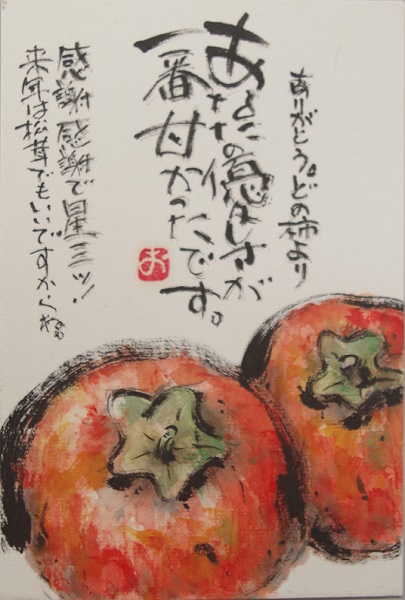 ありがとう。どの柿より
あなたの優しさが
一番甘かったです。
お
感謝感謝で星三ッ!
来年は松茸でもいいですからね。